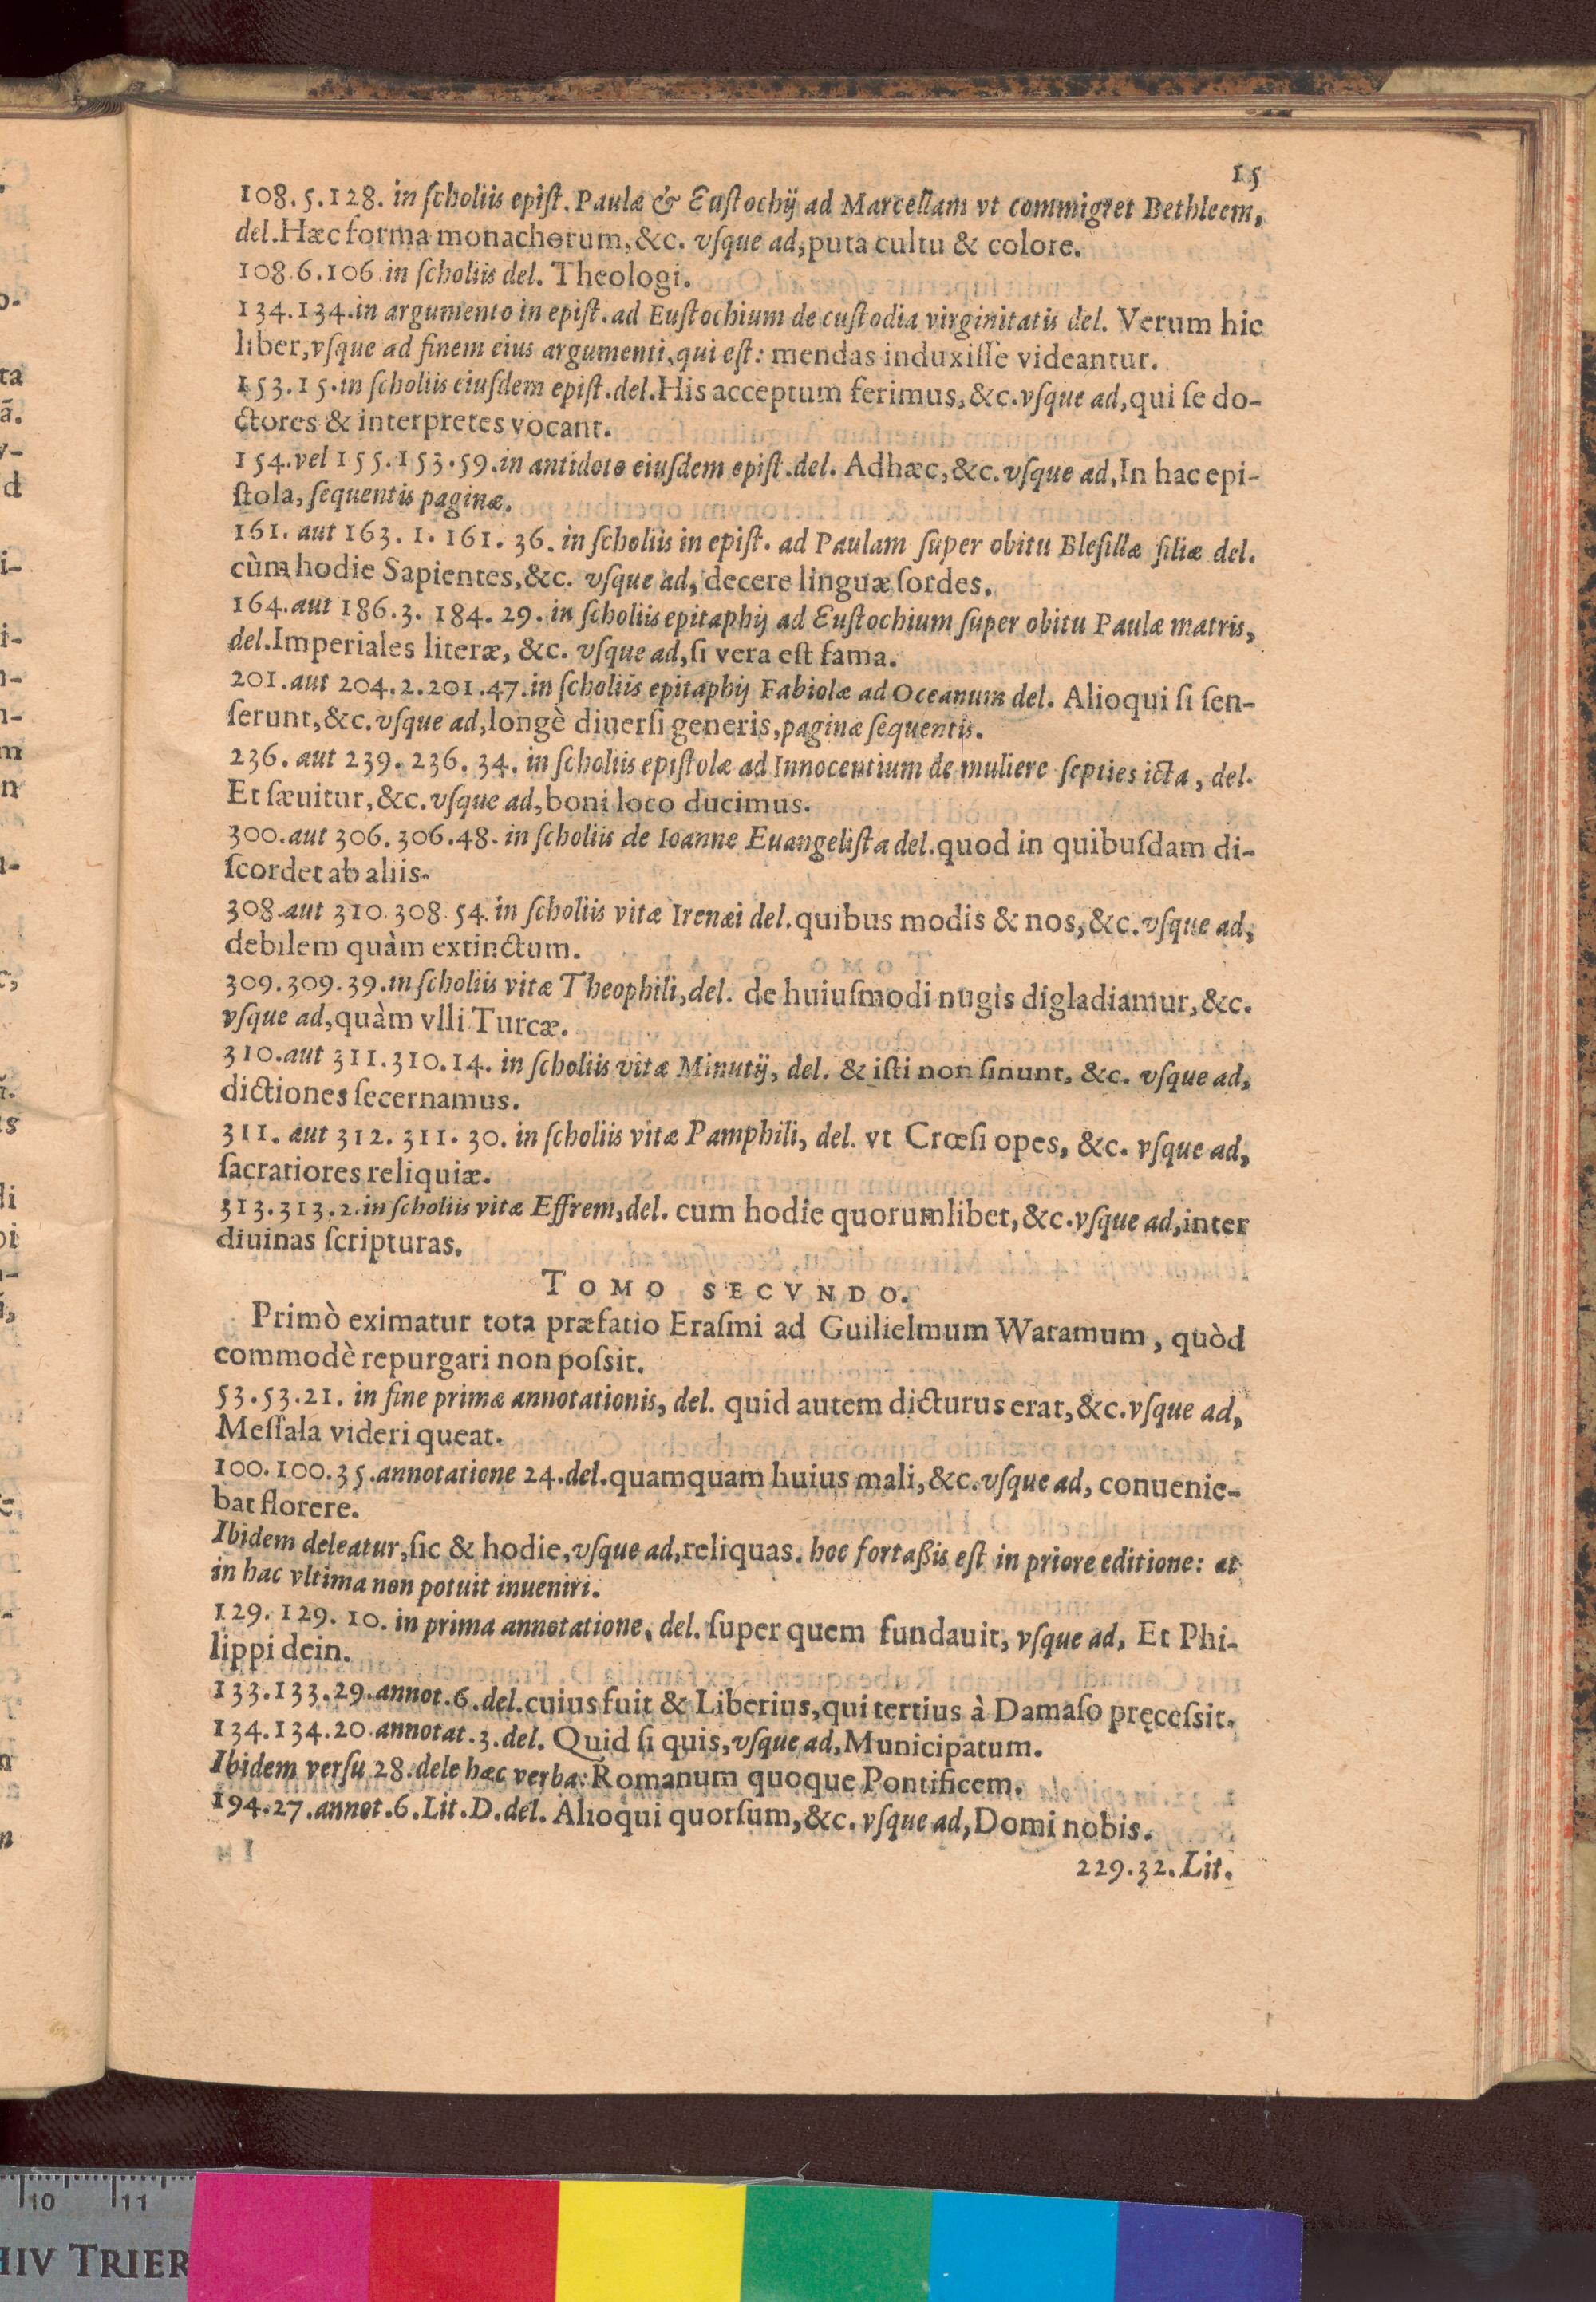 15
108.5.128. in ſcholiis epiſt. Paulæ & Euſtochij ad Marcellam vt commigret Bethleem,
del. Hæc forma monachorum, &c. vſque ad, puta cultu & colore.
108.6.106. in ſcholiis del. Theologi.
134.134. in argumento in epiſt. ad Euſtochium de cuſtodia virginitatis del. Verum hic
liber, vſque ad finem eius argumenti, qui eſt: mendas induxiſſe videantur.
153.15. in ſcholiis eiuſdem epiſt. del. His acceptum ferimus, &c. vſque ad, qui ſe do-
ctores & interpretes vocant.
154. vel 155.153.59. in antidoto eiuſdem epiſt. del. Adhæc, &c. vſque ad, In hac epi-
ſtola, ſequentis paginæ.
161. aut 163. 1. 161. 36. in ſcholiis in epiſt. ad Paulam ſuper obitu Bleſillæ filiæ del.
cùm hodie Sapientes, &c. vſque ad, decere linguæ ſordes.
164. aut 186. 3. 184. 29. in ſcholiis epitaphij ad Euſtochium ſuper obitu Paulæ matris,
del. Imperiales literæ, &c. vſque ad, ſi vera eſt fama.
201. aut 204. 2. 201. 47. in ſcholiis epitaphij Fabiolæ ad Oceanum del. Alioqui ſi ſen-
ſerunt, &c. vſque ad, longè diuerſi generis, paginæ ſequentis.
236. aut 239. 236. 34. in ſcholiis epiſtolæ ad Innocentium de muliere ſepties icta, del.
Et ſæuitur, &c. vſque ad, boni loco ducimus.
300. aut 306. 306. 48. in ſcholiis de Ioanne Euangeliſta del. quod in quibuſdam di-
ſcordet ab aliis.
308. aut 310. 308. 54. in ſcholiis vitæ Irenæi del. quibus modis & nos, &c. vſque ad,
debilem quàm extinctum.
309. 309. 39. in ſcholiis vitæ Theophili, del. de huiuſmodi nugis digladiamur, &c.
vſque ad, quàm vlli Turcæ.
310. aut 311. 310. 14. in ſcholiis vitæ Minutij, del. & iſti non ſinunt, &c. vſque ad,
dictiones ſecernamus.
311. aut 312. 311. 30. in ſcholiis vitæ Pamphili, del. vt Crœſi opes, &c. vſque ad,
ſacratiores reliquiæ.
313. 313. 2. in ſcholiis vitæ Effrem, del. cum hodie quorumlibet, &c. vſque ad, inter
diuinas ſcripturas.
TOMO SECVNDO.
Primò eximatur tota præfatio Eraſmi ad Guilielmum Waramum, quòd
commodè repurgari non poſsit.
53. 53. 21. in fine primæ annotationis, del. quid autem dicturus erat, &c. vſque ad,
Meſſala videri queat.
100. 100. 35. annotatione 24. del. quamquam huius mali, &c. vſque ad, conuenie-
bat florere.
Ibidem deleatur, ſic & hodie, vſque ad, reliquas. hoc fortaßis eſt in priore editione: at
in hac vltima non potuit inueniri.
129. 129. 10. in prima annotatione, del. ſuper quem fundauit, vſque ad, Et Phi-
lippi dein.
133. 133. 29. annot. 6. del. cuius fuit & Liberius, qui tertius à Damaſo pręceſsit.
134. 134. 20. annotat. 3. del. Quid ſi quis, vſque ad, Municipatum.
Ibidem verſu 28. dele hæc verba: Romanum quoque Pontificem.
194. 27. annot. 6. Lit. D. del. Alioqui quorſum, &c. vſque ad, Domi nobis.
229. 32. Lit.
10 11
HIV TRIER